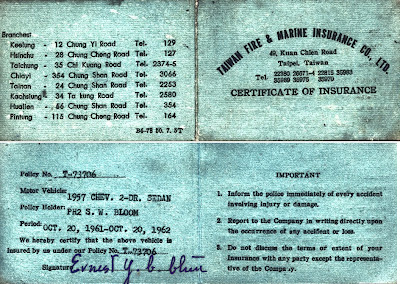 Branches:
Keelung - 12 Chung Yi Road Tel. 129
Hsinchu - 28 Chung Cheng Road Tel. 127
Taichung - 35 Chi Kuang Road Tel. 2374-5
Chiayi - 354 Chung Shan Road Tel. 3066
Tainan - 24 Chung Shan Road Tel. 2253
Kaohsiung - 34 Ta kung Road Tel. 2580
Hualien - 66 Chung Shan Road Tel. 354
Pintung - 115 Chung Cheng Road Tel. 164
50. 7. 5T
TAIWAN FIRE & MARINE INSURANCE CO., LTD.
49, Kuan Chien Road
Taipei, Taiwan
Tel.
CERTIFICATE OF INSURANCE
Policy No. T-73706
Motor Vehicle:
1957 CHEV. 2-DR. SEDAN
Policy Holder:
PH2 S. W. BLOOM
Period: OCT. 20, 1961-OCT. 20, 1962
We hereby certify that the above vehicle is
insured by us under our Policy No. T-73706
Signature
IMPORTANT
1. Inform the police immediately of every accident
involving injury or damage.
2. Report to the Company in writing directly upon
the occurrence of any accident or loss.
3. Do not discuss the terms or extent of your
Insurance with any party except the representa-
tive of the Company.